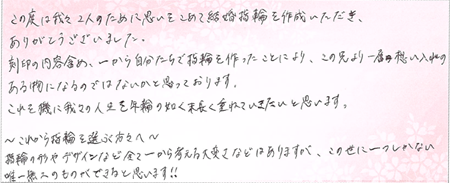 この度は我々2人のために思いをこめて結婚指輪を作成いただき、
ありがとうございました。
刻印の内容含め、一から自分たちで指輪を作ったことにより、この先より一層の想い入れの
ある物になるのではないかと思っております。
これを機に我々の人生を年輪の如く末長く重ねていきたいと思います。
～これから指輪を選ぶ方々へ～
指輪の形やデザインなど全て一から考える大変さなどはありますが、この世に一つしかない
唯一無二のものができると思います!!